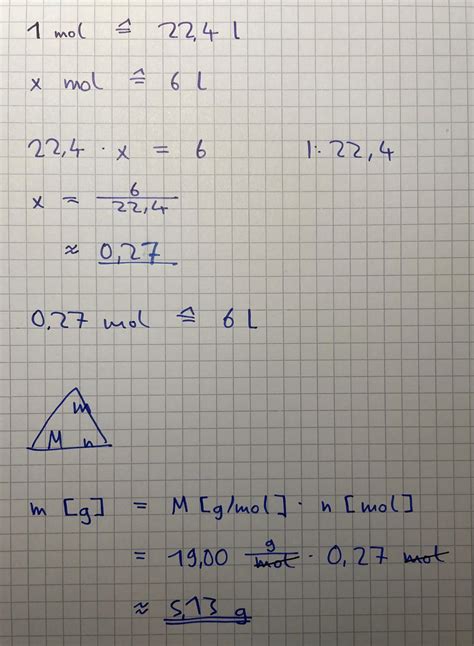 1 mol ≙ 22,4 l
x mol ≙ 6 L
22,4 · x = 6 |: 22,4
x = 6/22,4
≈ 0,27
0,27 mol ≙ 6 L
m
M n
m [g] = M [g/mol] · n [mol]
= 19,00 g/mol · 0,27 mol
≈ 5,13 g